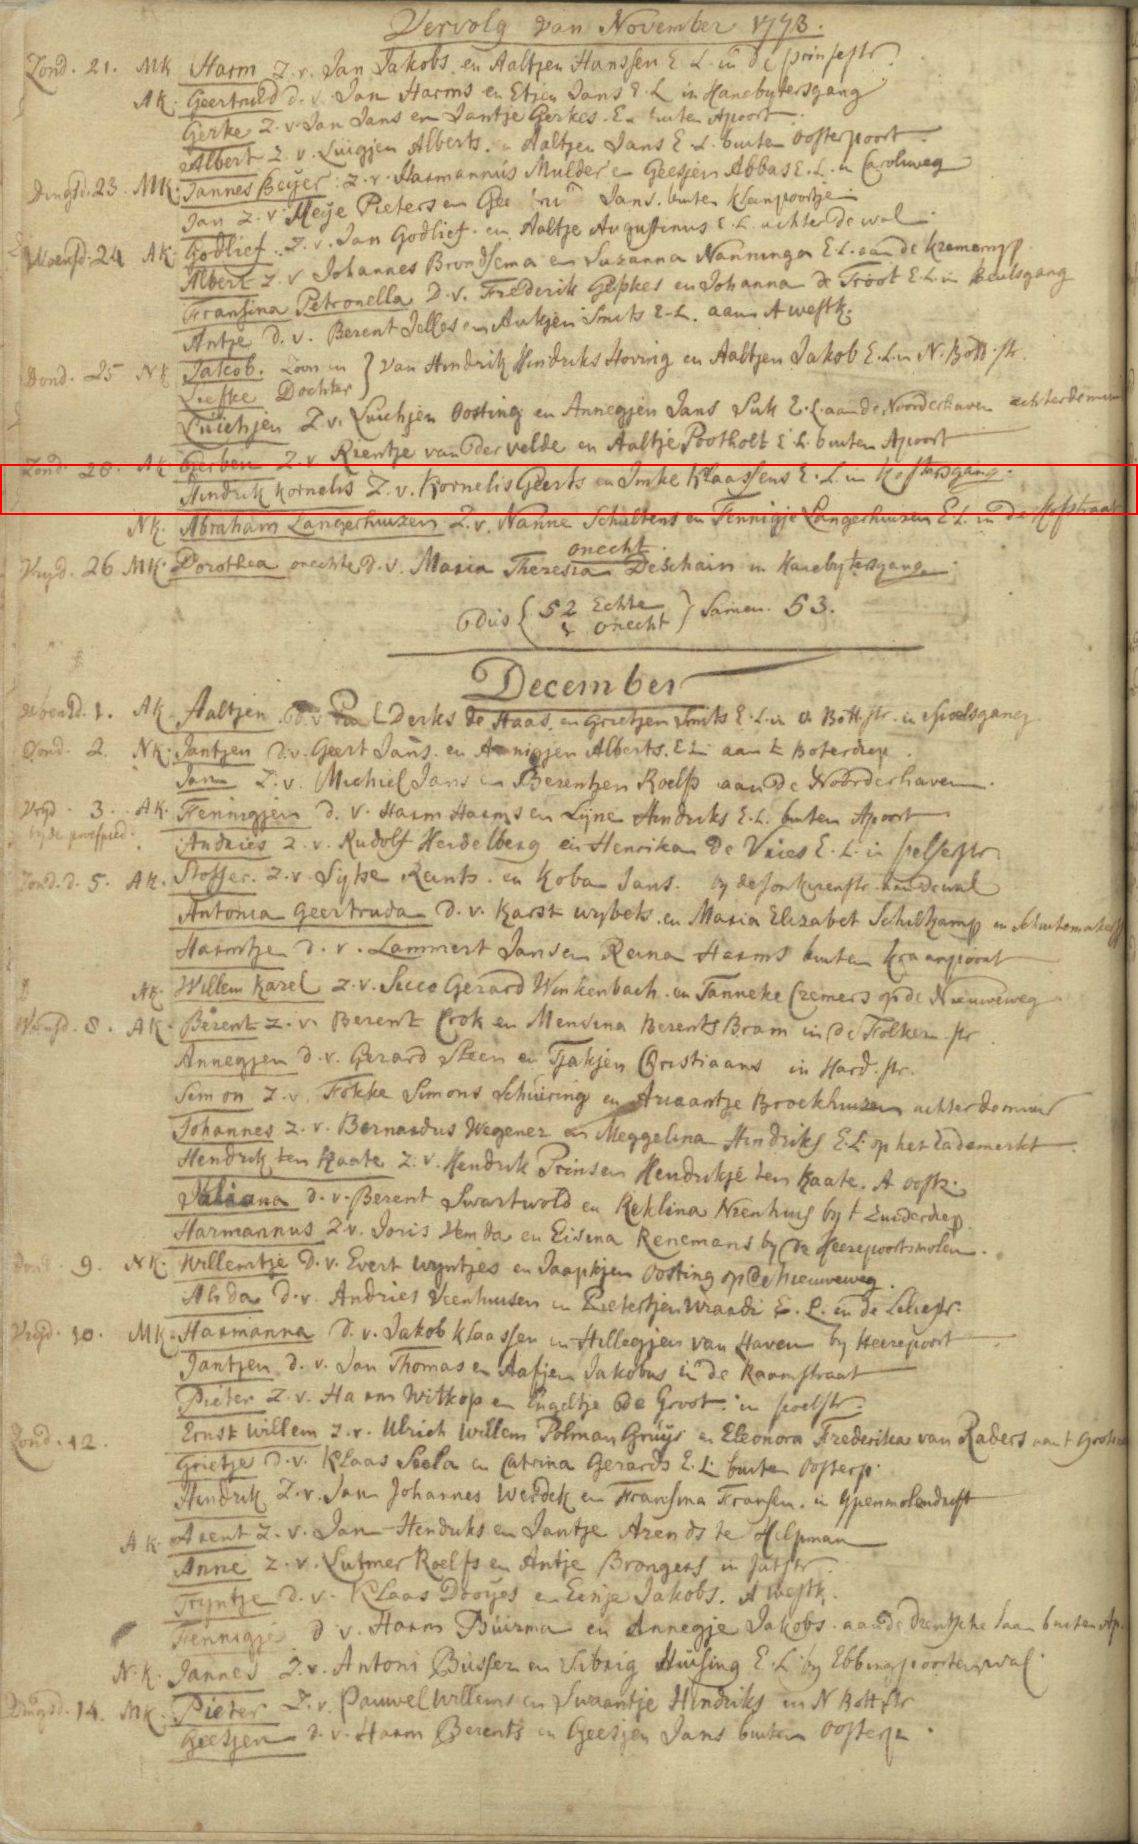 Vervolg van November 1773.
Zond. 21. MK Harm Z. v. Jan Jakobs en Aaltjen Hanssen E. L. in de prinsestr.
AK. Geertruid d. v. Jan Harms en Etjen Jans E. L in Hanebytersgang
Gerke Z. v. Jan Jans en Jantje Gerkes. E. L buiten Apoort
Albert Z. v. Luigjen Alberts. en Aaltjen Jans E. L. buiten Oosterpoort
Dingsd. 23. MK. Jannes Beijer. Z. v. Harmannus Mulder en Geesjen Abbas E. L. in Caroliweg
Jan Z. v. Meije Pieters en Jans. buiten kleinpoortje
Woensd. 24 AK. Godlief. Z. v. Jan Godlief. en Aaltje Augustinus E. L. achter de wal
Albert Z. v Johannes Brondsema en Suzanna Nanninga E. L. aan de kremerryp.
Fransina Petronella D. v. Frederik Gepkes en Johanna de Troot E. L. in Beulsgang
Antje d. v. Berent Jelles en Aukjen Smits E. L. aan A westk.
Dond. 25 NK Jakob. Zoon en } van Hindrik Hindriks Hoving en Aaltjen Jakob E. L. in N. Bott. str.
Liefke Dochter
Luichjen Z. v. Luichjen Oosting en Annegjen Jans Suk E. L. aan de Noorderhaven achter de muur
Zond. 28. AK. Gerben Z. v Rientje van der velde en Aaltje Pootholt E. L. buiten Apoort
Hindrik Kornelis Z. v. Kornelis Geerts en Imke Klaassens E. L. in Kostersgang.
NK. Abraham Langerhuizen Z. v. Nanne Schultens en Fennigje Langerhuizen E L. in de Hofstraat
Vryd. 26 MK. Dorothea onechte d. v. Maria Theresia Deschain in Hanebytersgang.
onecht
Dus { 52 Echte } Samen. 53.
1 onecht
December
Woensd. 1. AK. Aaltjen d. v. Paul Derks de Haas en Grietjen Smits E. L. in N Bott. str. in Poelsgang
Dond. 2. NK. Jantjen d. v. Geert Jans. en Annigjen Alberts. E L. aan t Boterdiep
Jan Z. v. Michiel Jans en Berentjen Roelfs aan de Noorderhaven.
Vryd. 3. AK. Fennigjen d. v. Harm Harms en Lyne Hindriks E. L. buiten Apoort
Andries z. v. Rudolf Heidelberg en Henrika de Vries E. L. in pelsestr.
Zond. d. 5. AK. Stoffer. Z. v. Sytse Reints. en Koba Jans. by de Jonkerenstr. aan de wal
Antonia Geertruda D. v. Karst wybets. en Maria Elizabet Schiltkamp in Schuitemakersstr
Harmtje d. v. Lammert Jans en Reina Harms buiten kraanpoort
AK. Willem Karel z. v. Sicco Gerard Winkenbach. en Tanneke Cremers op de Nieuweweg
Woensd. 8. AK. Berent z. v. Berent Crok en Mensina Berents Bram in de Folkern str
Annegjen d. v. Gerard Steen en Tjakjen Christiaans in Hard. str.
Simon Z. v. Fokke Simons Schuiring en Ariaantje Broekhuizen achter de muur
Johannes z. v. Bernardus Wegener en Meggelina Hindriks E. L. op het Lademerkt
Hendrik ten Kaate Z. v. Hendrik Prins en Hendrikje ten Kaate. A oostz.
Juliana d. v. Berent Swartwold en Reklina Nienhuis by t Zuiderdiep
Harmannus Z v. Joris Hemda en Eisina Renemans by de Heerepoortsmolen.
Dond. 9. NK. Willemtje D. v. Evert wyntjes en Jaapkjen Oosting op de Nieuweweg.
Alida d. v. Andries Veenhuisen en Pietertjen Wraadi E. L. in de Leliestr.
Vryd. 10. MK. Harmanna d. v. Jakob Klaassen en Hillegjen van Haven by Heerepoort
Jantjen d. v. Jan Thomas en Aafjen Jakobus in de Raamstraat
Pieter Z. v. Harm Witkop en Engeltje de Groot. in poelstr.
Zond. 12. Ernst Willem z. v. Ulrich Willem Polman Gruijs en Eleonora Frederika van Raders aan t Groote
Grietje d. v. Klaas Seela en Catrina Gerards E. L. buiten Oosterp.
Hindrik Z. v. Jan Johannes Werdek en Fransina Fransen. in Ypenmolendrift
AK Arent Z. v. Jan Hendriks en Jantje Arends te Helpman
Anne z. v. Lutmer Roelfs en Antje Brongers in Jatstr.
Tryntje d. v. Klaas Dooijes en Eisje Jakobs. A westk.
Fennigje d v. Harm Buirma en Annegje Jakobs. aan de Drentsche laan buiten Ap.
N. K. Jannes Z. v. Antoni Busser en Sibrig Huising E. L. by Ebbingpoortenwal.
Dingsd. 14. MK. Pieter Z. v. Pauwel Willems en Swaantje Hindriks in N Bott str
Geesjen d. v. Harm Berents en Geesjen Jans buiten Oosterp.